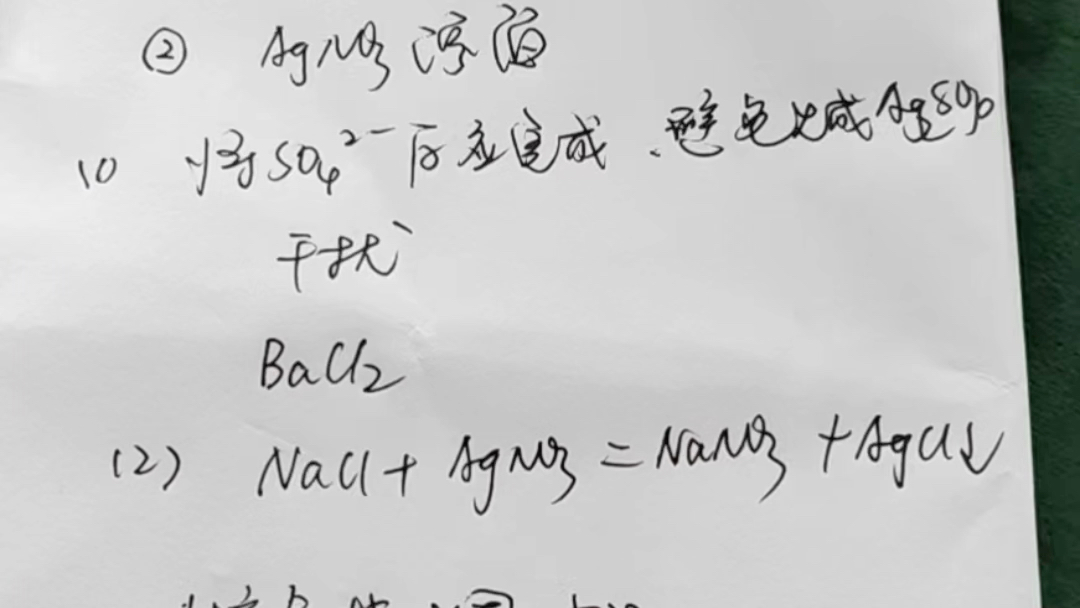 ② AgNO₃ 溶液
(1) 将SO₄²⁻反应完成、避免生成Ag₂SO₄
干扰
BaCl₂
(2) NaCl + AgNO₃ = NaNO₃ + AgCl↓